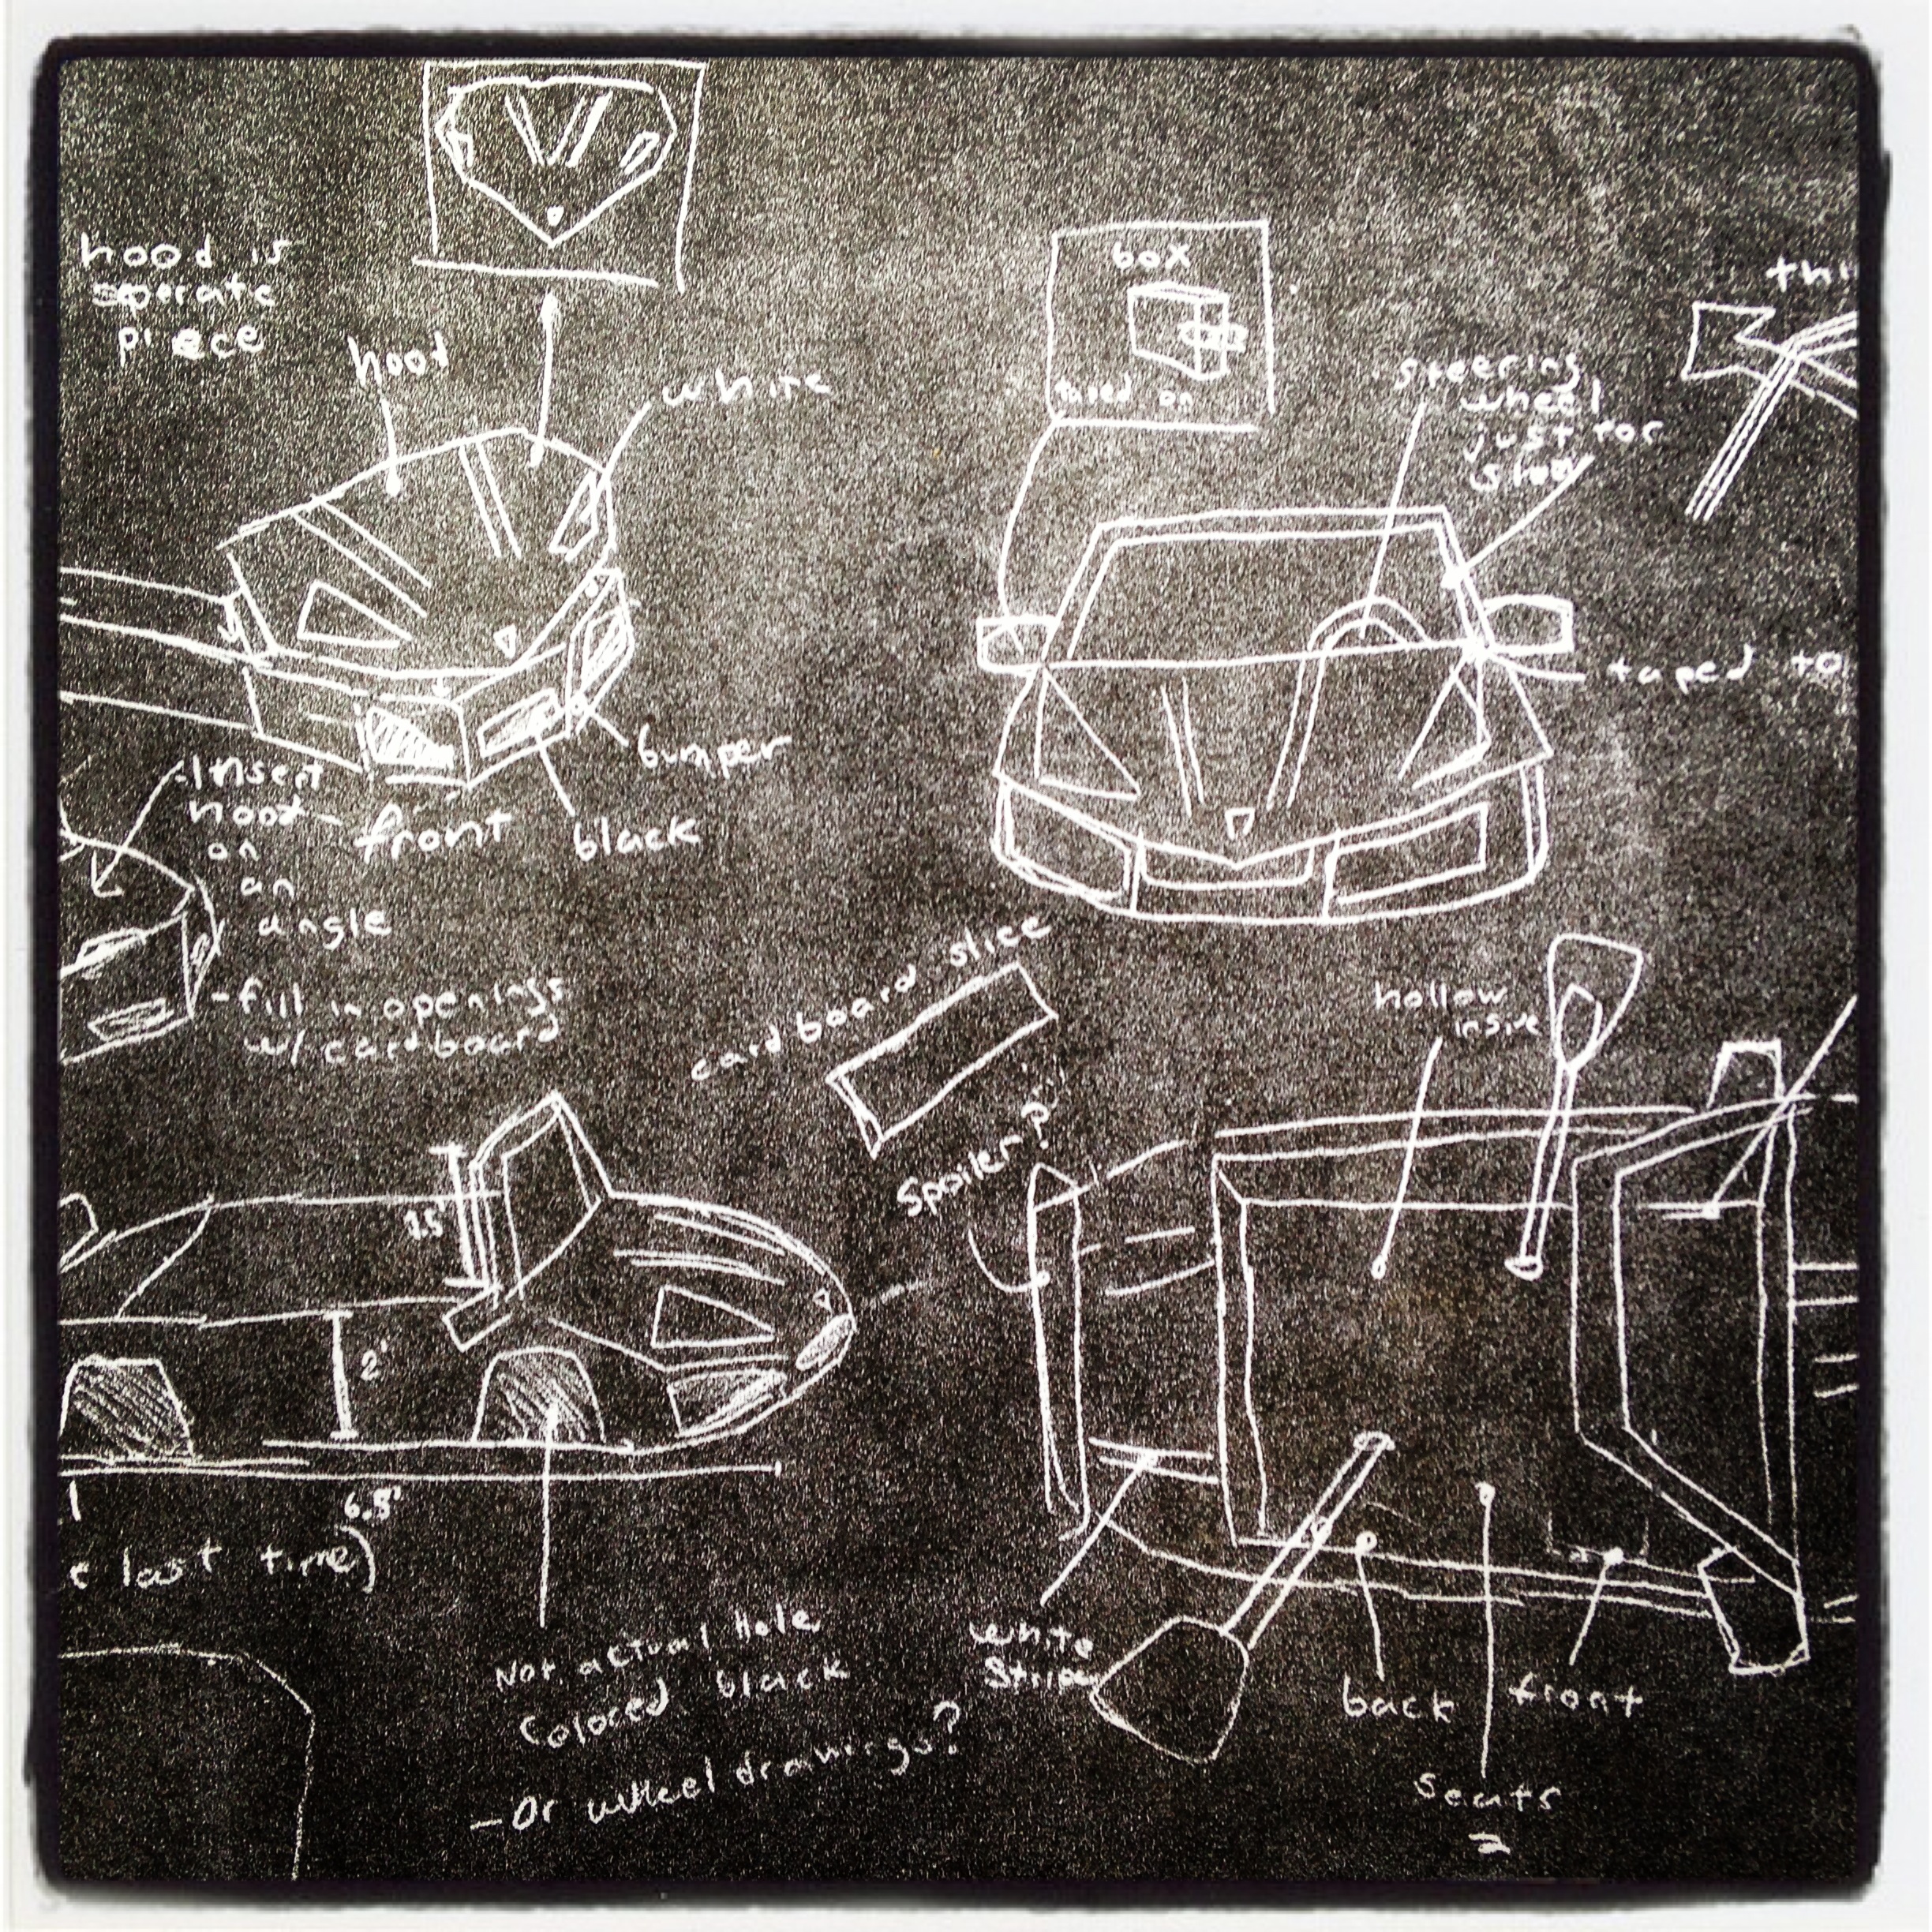 hood is
seperate
piece
hood
white
box
taped on
steering
wheel
just for
show
thi
taped to
bumper
black
-Insert
hood
on
an
angle
front
-fill in openings
w/ cardboard
cardboard slice
spoiler?
hollow
inside
2'
6.5'
last time)
Not actual hole
Colored black
-Or wheel drawings?
white
Stripe
back
front
seats
2